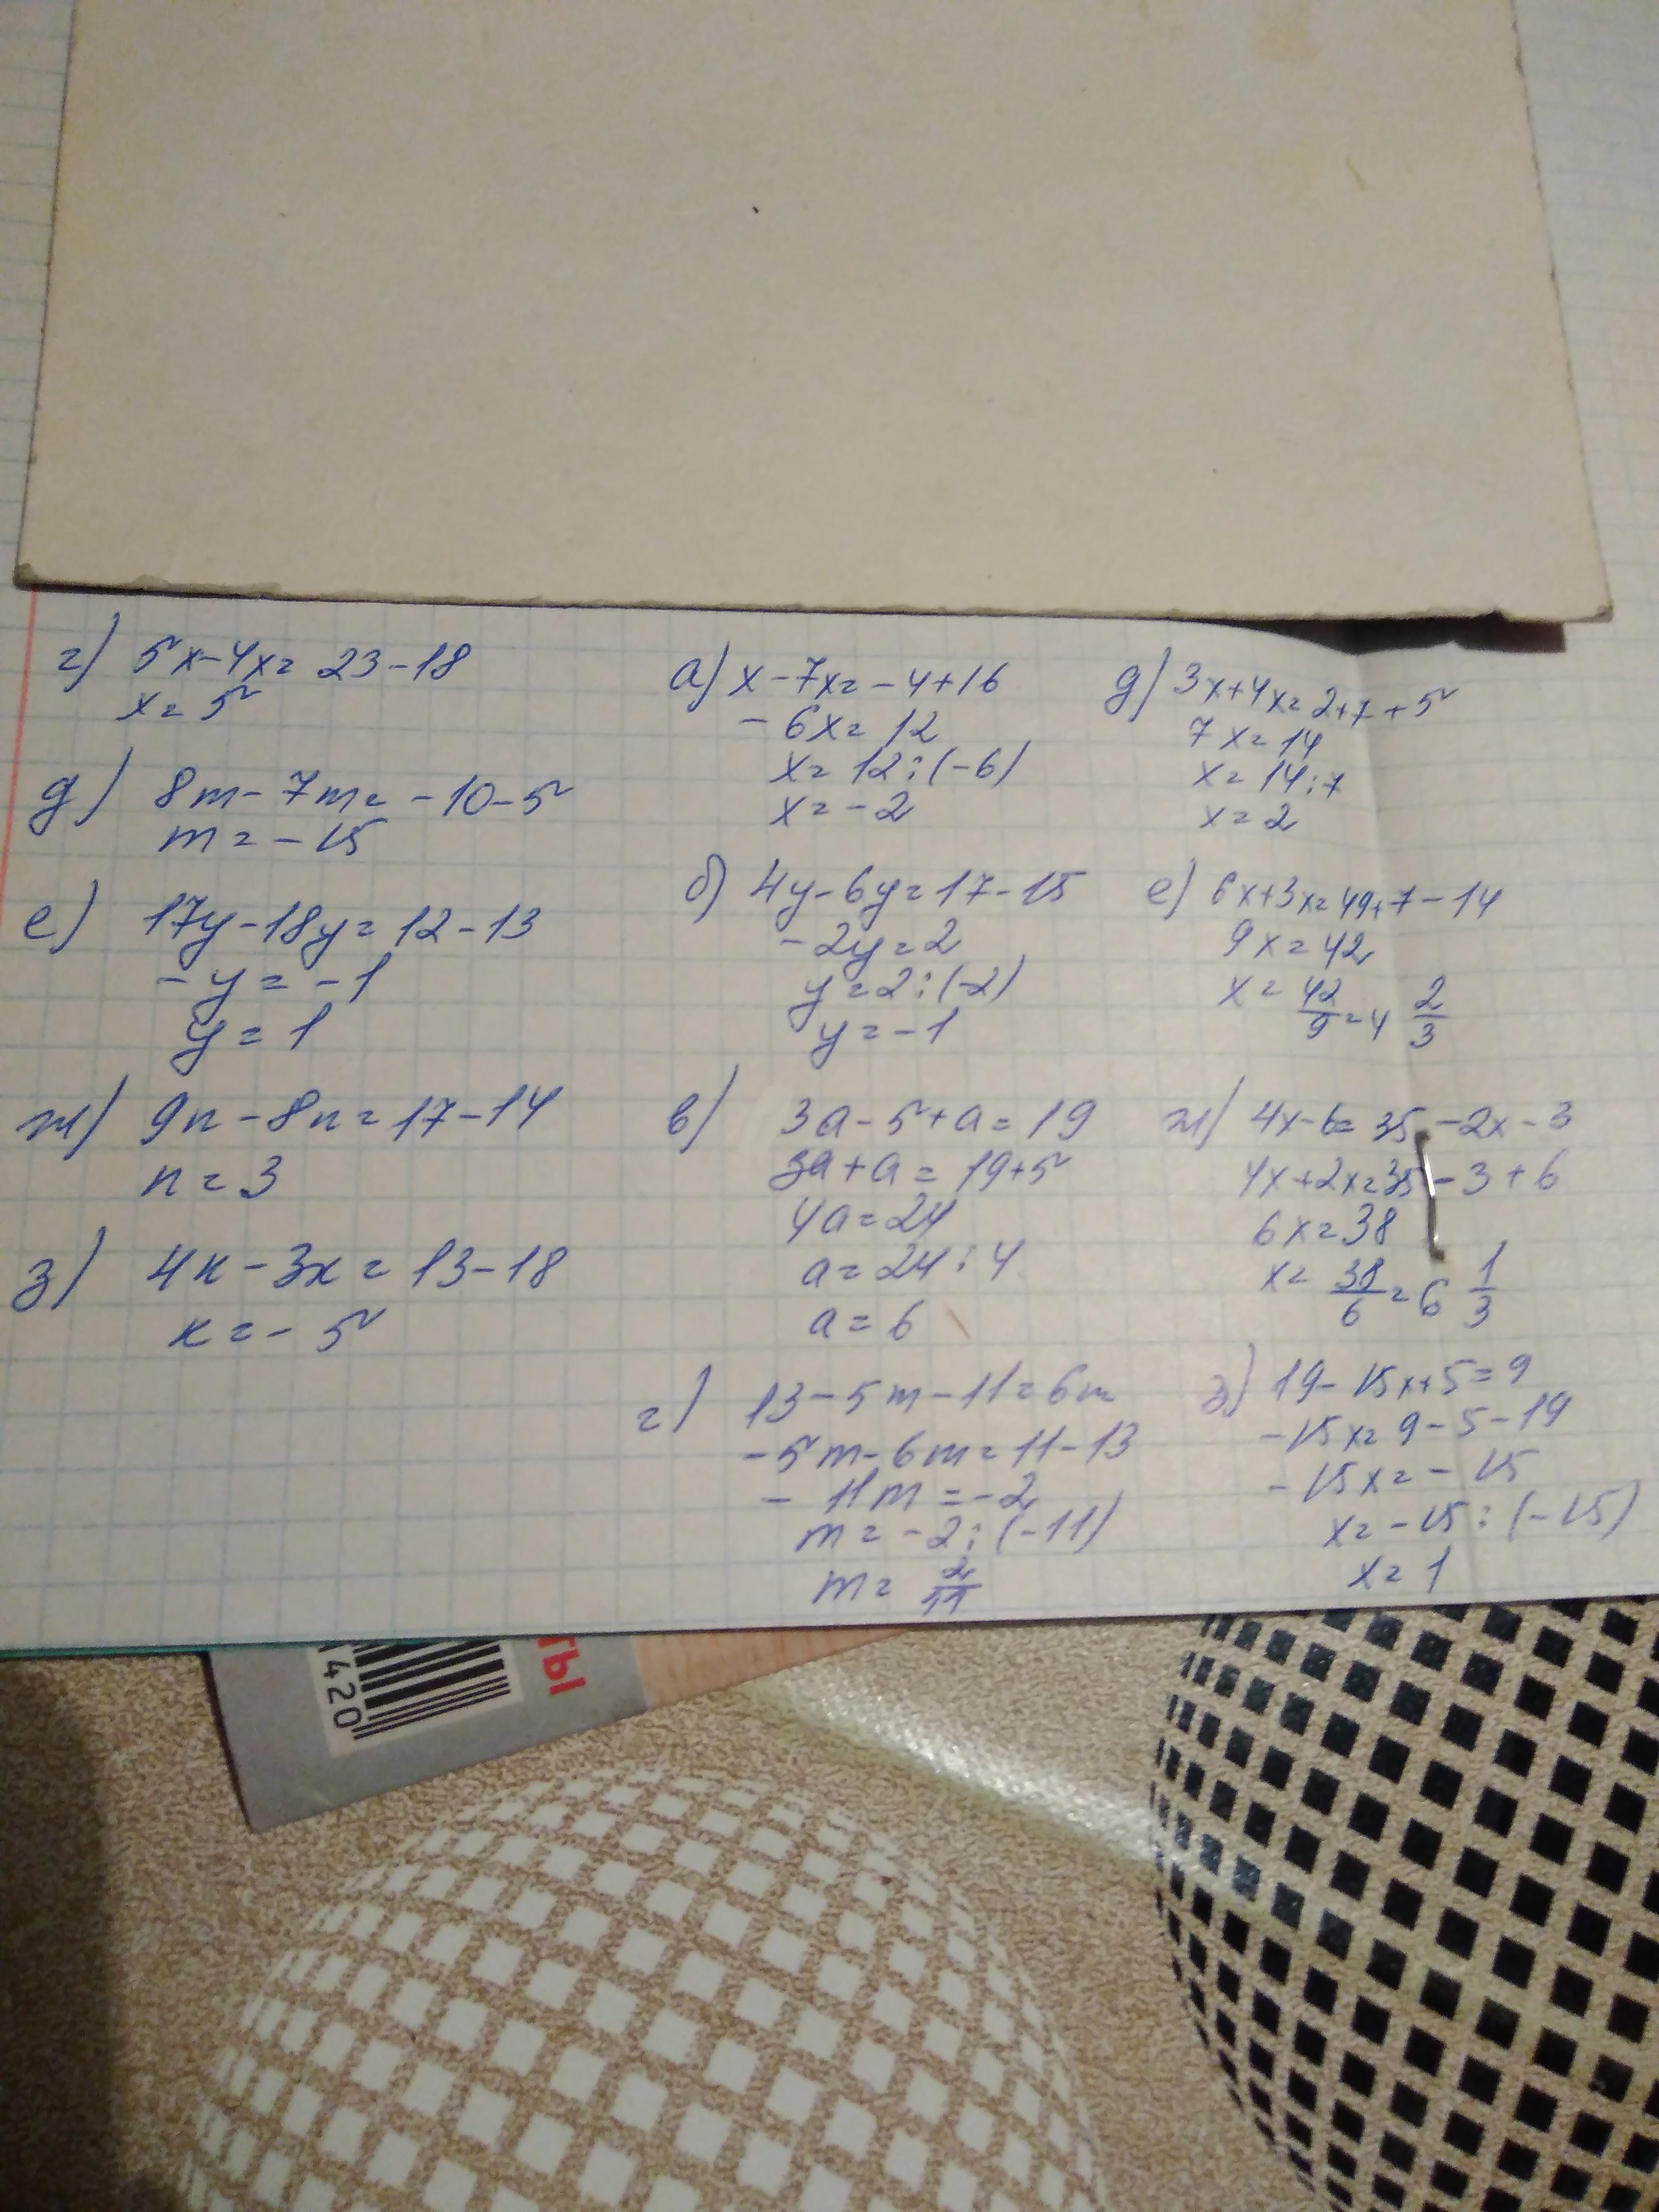 г) 5x-4x= 23-18
x= 5
д) 8m-7m= -10-5
m= -15
е) 17y-18y=12-13
-y=-1
y=1
ж) 9n-8n=17-14
n=3
з) 4x-3x=13-18
x=-5
а) x-7x=-4+16
-6x=12
x=12:(-6)
x=-2
б) 4y-6y=17-15
-2y=2
y=2:(-2)
y=-1
в) 3a-5+a=19
3a+a=19+5
4a=24
a=24:4
a=6
г) 13-5m-11=6m
-5m-6m=11-13
-11m=-2
m=-2:(-11)
m= 2/11
д) 3x+4x=2+7+5
7x=14
x=14:7
x=2
е) 6x+3x=49+7-14
9x=42
x= 42/9 =4 2/3
ж) 4x-6=35-2x-3
4x+2x=35-3+6
6x=38
x= 38/6 =6 1/3
з) 19-15x+5=9
-15x=9-5-19
-15x=-15
x=-15:(-15)
x=1
ТЫ
1420